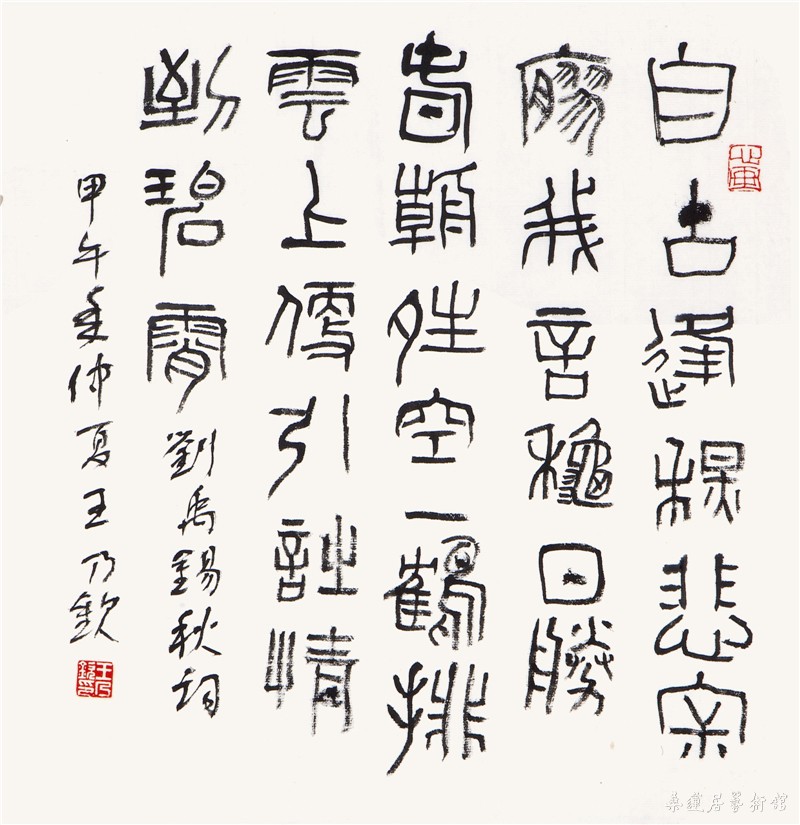 自古逢秋悲寂
寥我言秋日勝
春朝晴空一鶴排
雲上便引詩情
到碧霄 劉禹錫秋詞
甲午年仲夏王乃欽
王乃欽印
桑蓮居藝術館